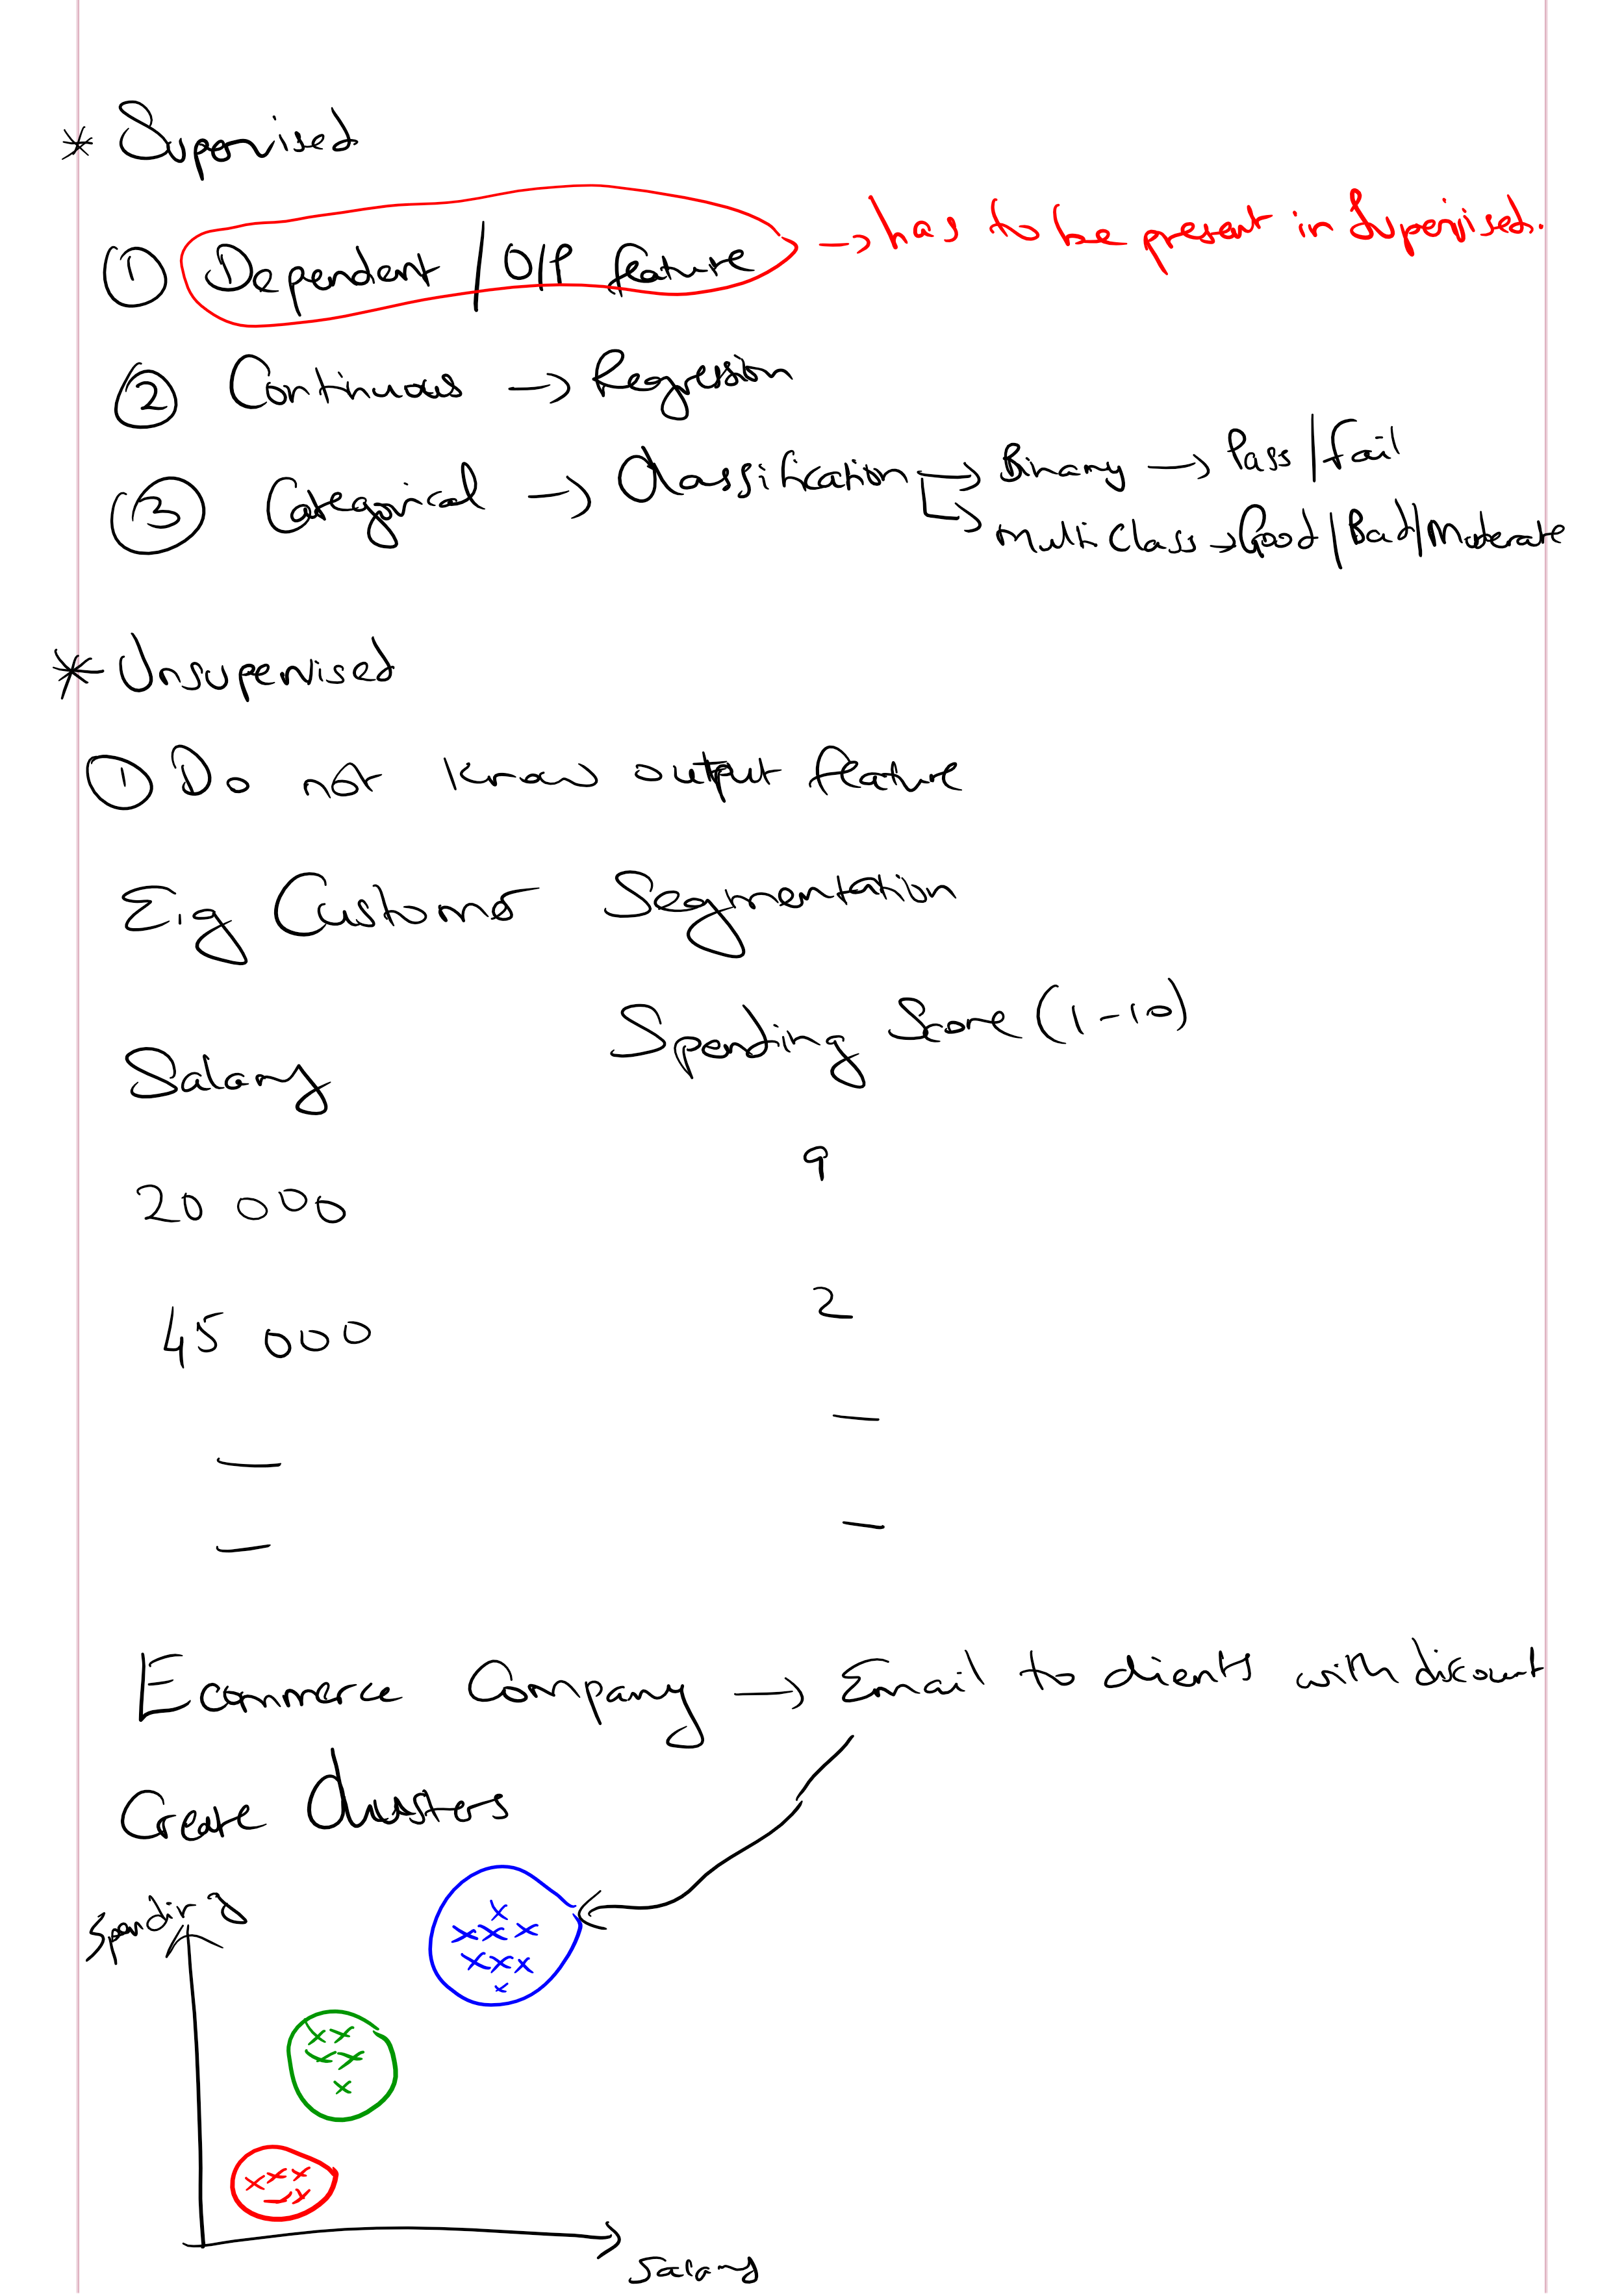 * Supervised
① Dependent / O/P feature → has to be present in Supervised.
② Continuous → Regression
③ Categorical → Classification → Binary → Pass/Fail
→ Multi Class → Good/Bad/Moderate
* Unsupervised
① Do not know output feature
E.g Customer Segmentation
Salary Spending Score (1-10)
20 000 9
45 000 2
— —
— —
Ecommerce Company → Email to clients with discount
Create Clusters
Spending
Salary